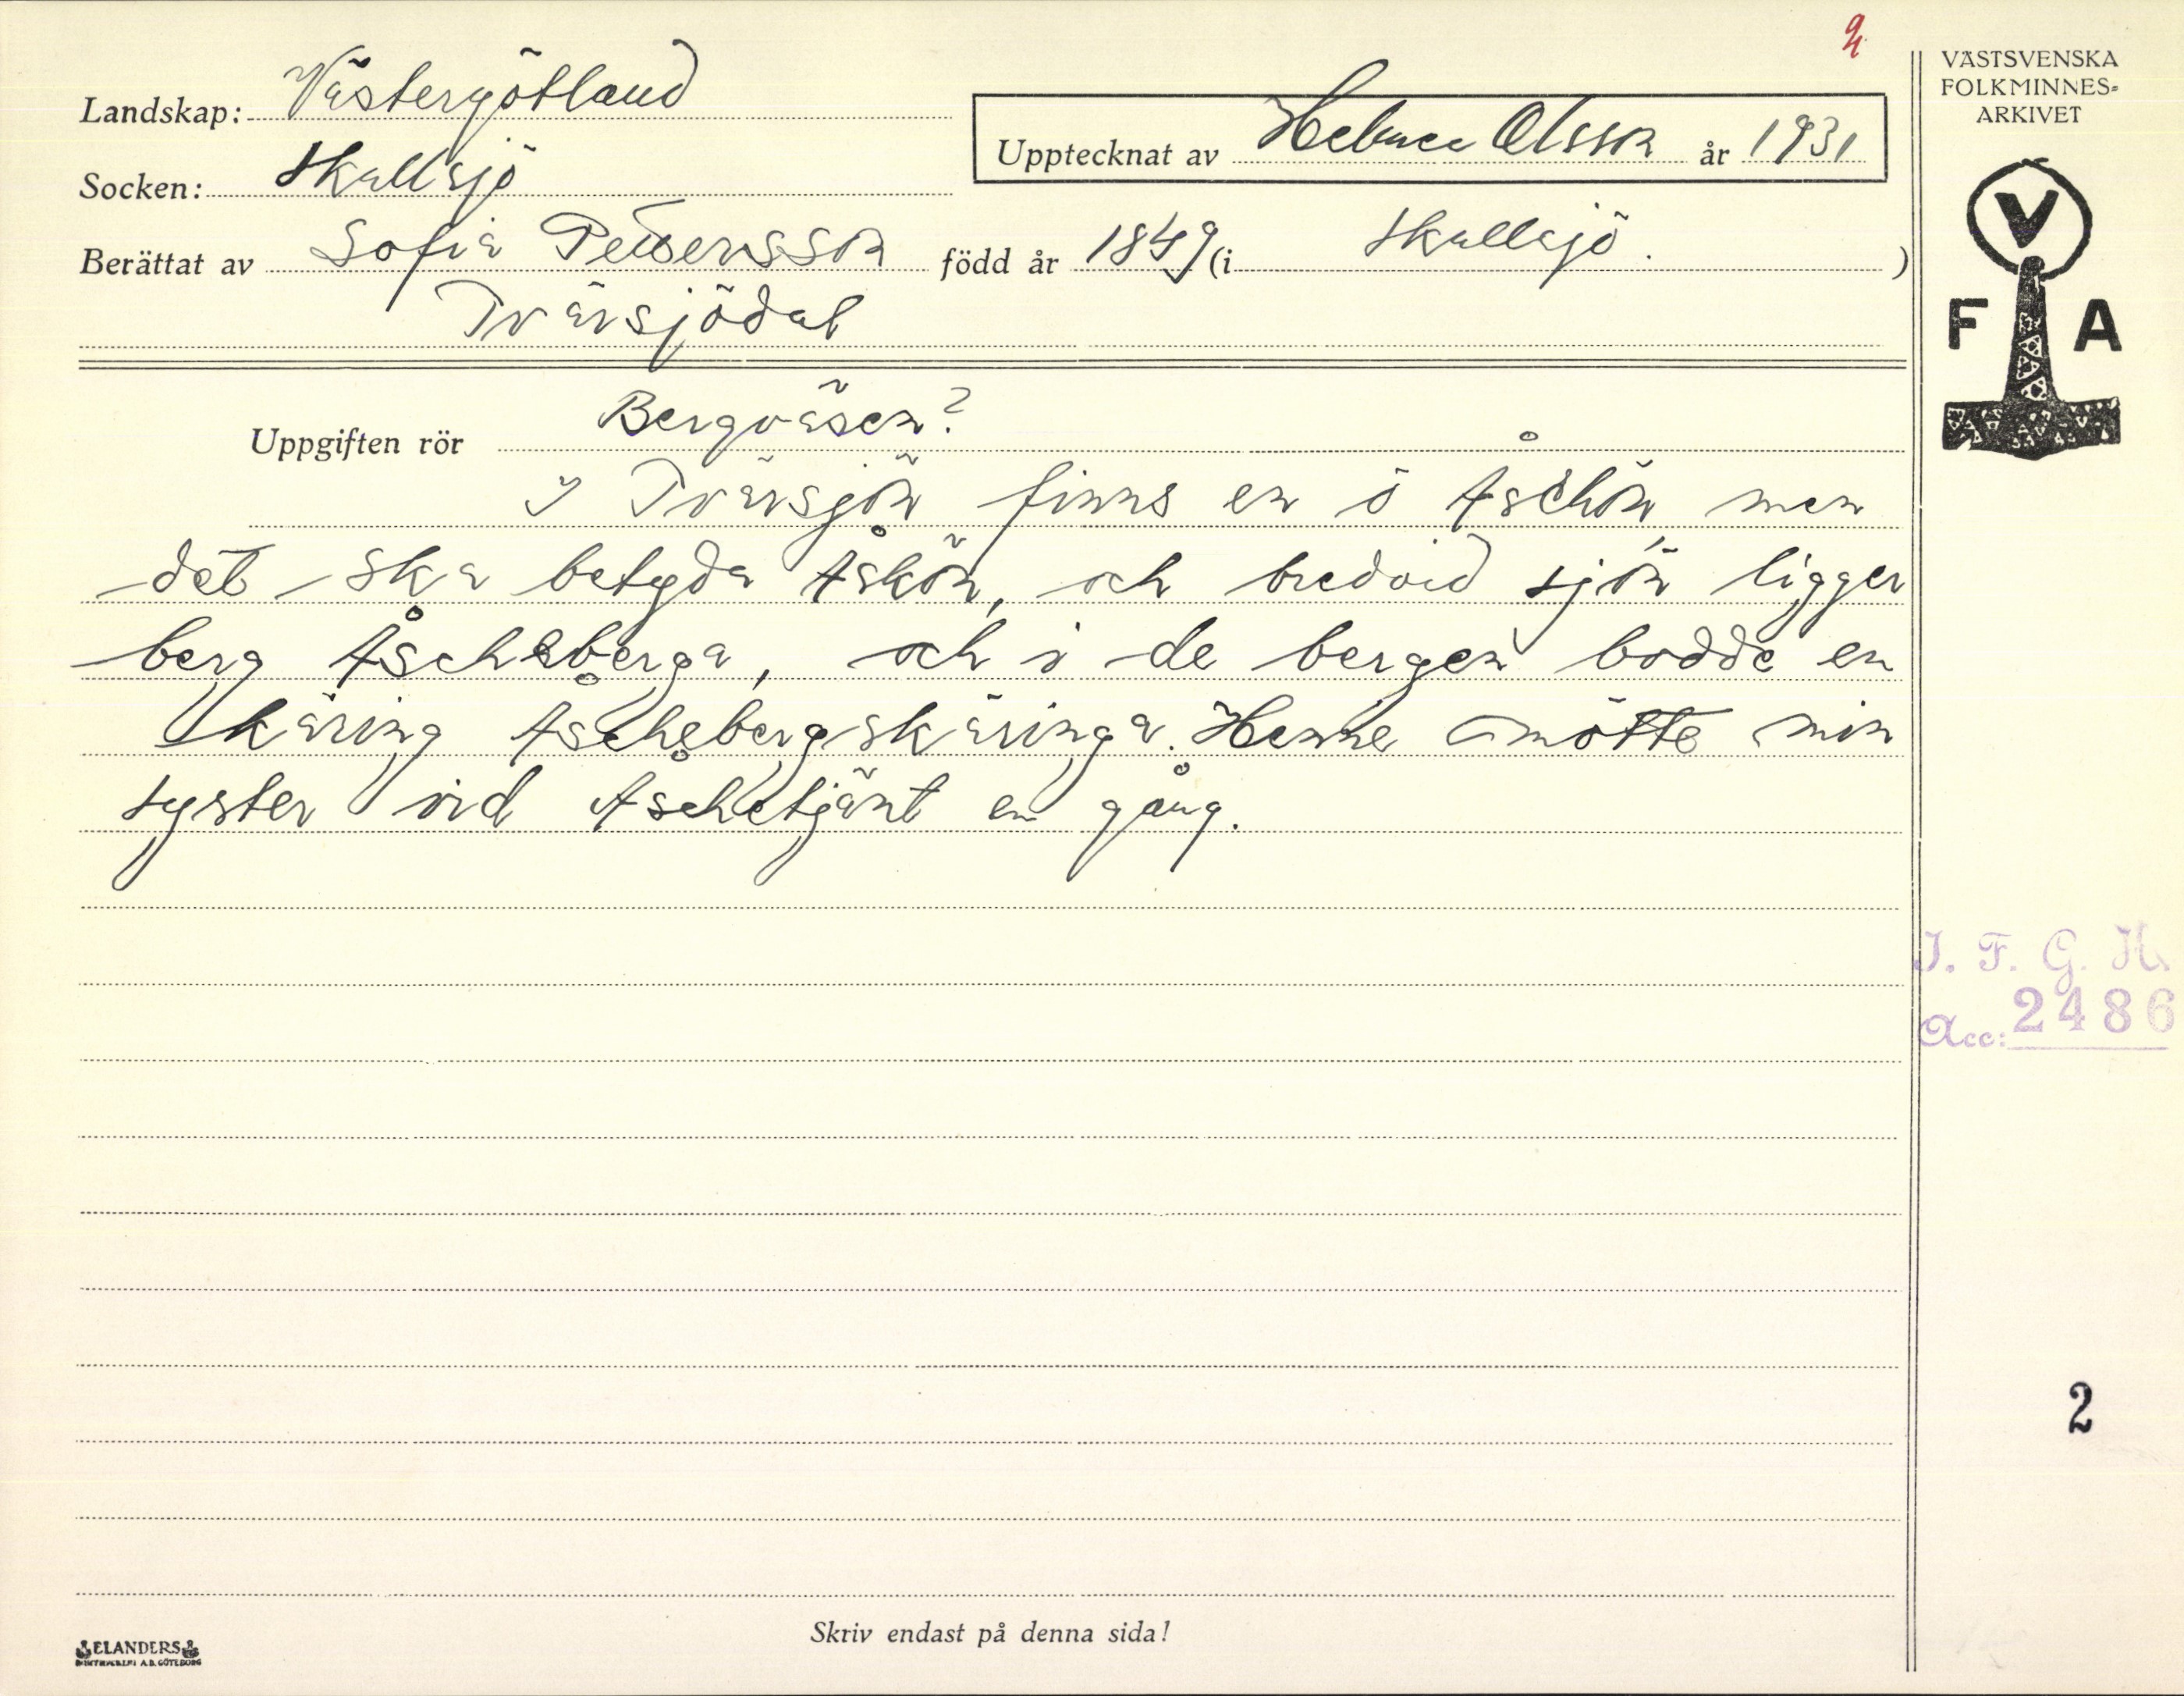 2
Landskap: Västergötland
Socken: Skallsjö
Upptecknat av Helmer Olsson år 1931
Berättat av Sofia Pettersson född år 1849 (i Skallsjö.)
Tvärsjödal
VÄSTSVENSKA
FOLKMINNES-
ARKIVET
V
F A
Uppgiften rör Bergväsen?
I Tvärsjön finns en ö Åschön, men
det ska betyda Åskön, och bredvid sjön ligger
berg Åscheberga, och i de bergen bodde en
käring Åschebergskäringa. Henne mötte min
syster vid Åschetjänt en gång.
I. F. G. H.
Acc: 2486
2
Skriv endast på denna sida!
ELANDERS
A.B. GÖTEBORG